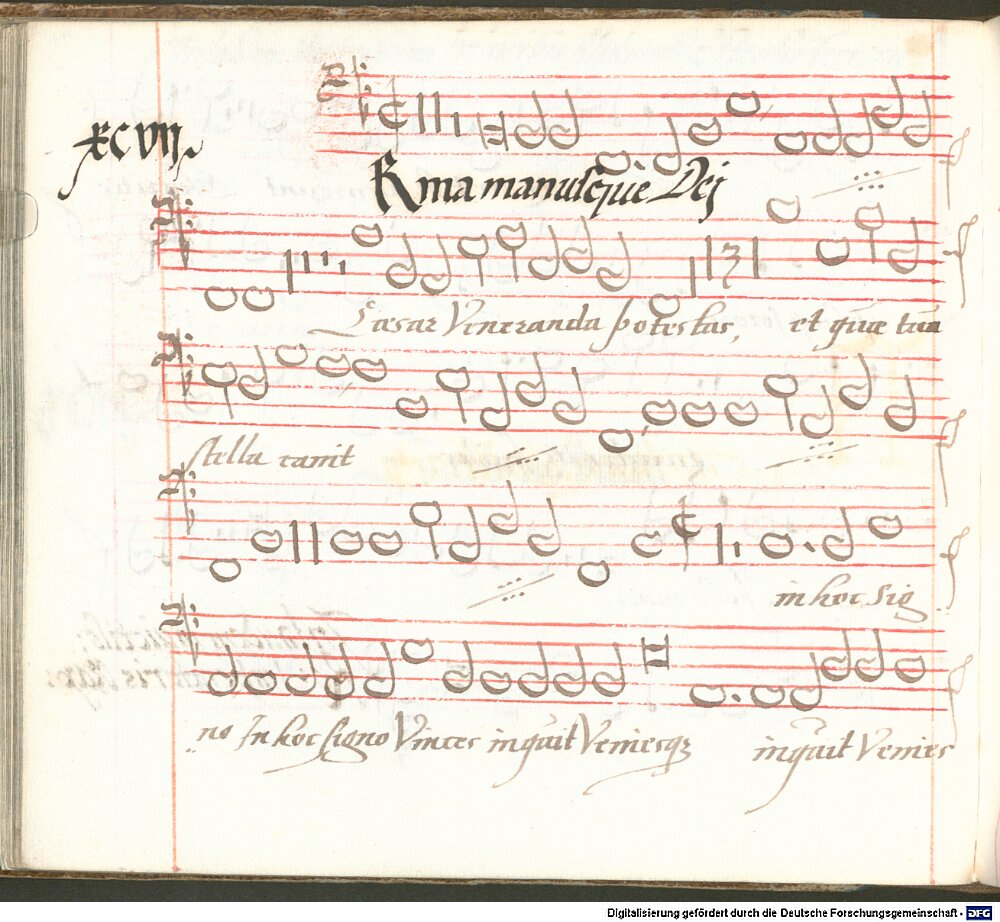 XCVII
Arma manusque Dej
Cæsar Veneranda potestas, et quæ tua
stella canit
in hoc sig
no In hoc signo Vinces inquit Veniesq;
inquit Venies
Digitalisierung gefördert durch die Deutsche Forschungsgemeinschaft - DFG